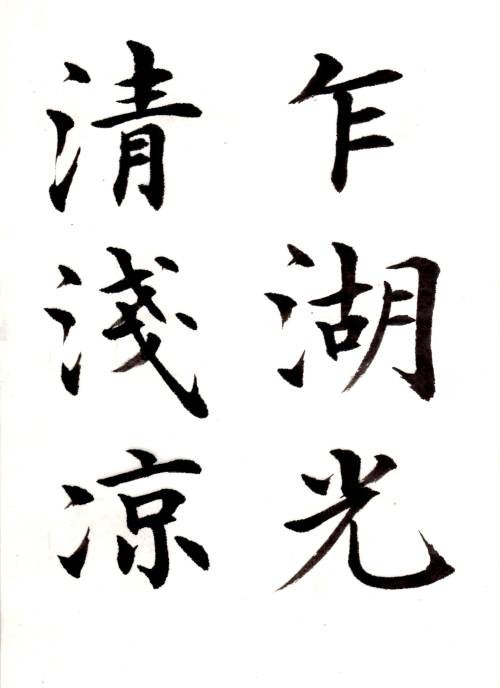 乍湖光
清淺涼